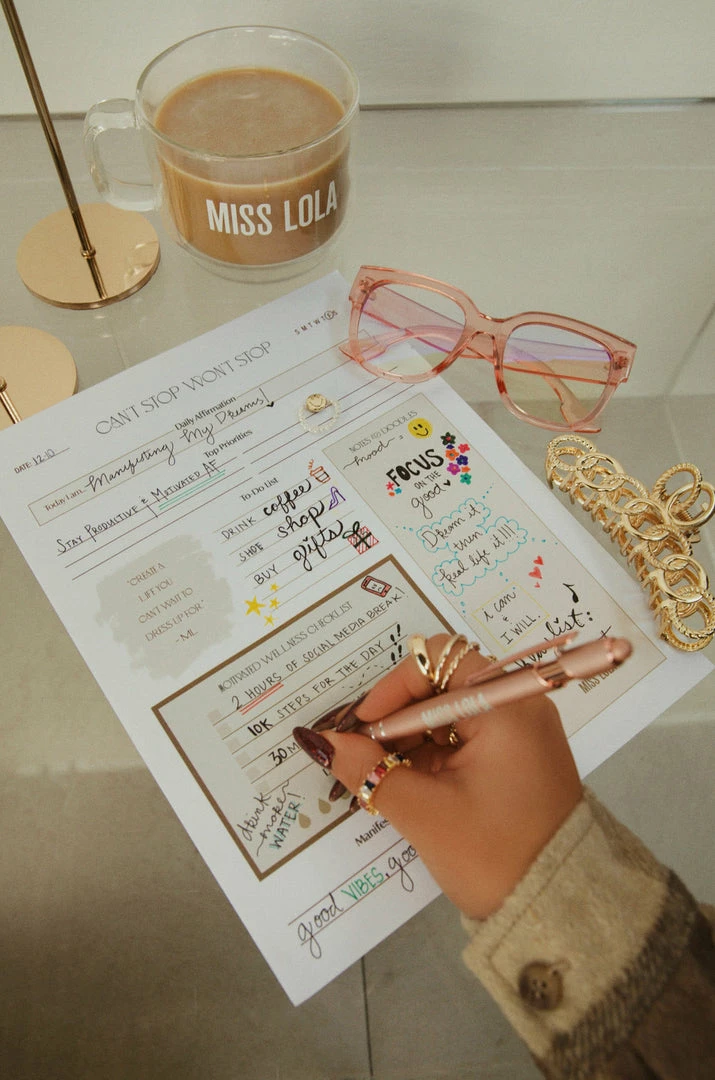 MISS LOLA
S M T W T F S
CAN'T STOP WON'T STOP
DATE: 12-10
Daily Affirmation
Today I am: Manifesting My Dreams!
Top Priorities
STAY PRODUCTIVE & MOTIVATED AF
To Do List
DRINK coffee
SHOE shop
BUY gifts
"CREATE A
LIFE YOU
CAN'T WAIT TO
DRESS UP FOR"
- ML
NOTES AND DOODLES
mood =
FOCUS
ON THE
good
Dream it
then
Real life it!!!
i can
&
I WILL
list:
MISS
MOTIVATED WELLNESS CHECKLIST
2 HOURS OF SOCIAL MEDIA BREAK!
10K STEPS FOR THE DAY!!
30
drink
more
WATER!
MISS LOLA
good VIBES,